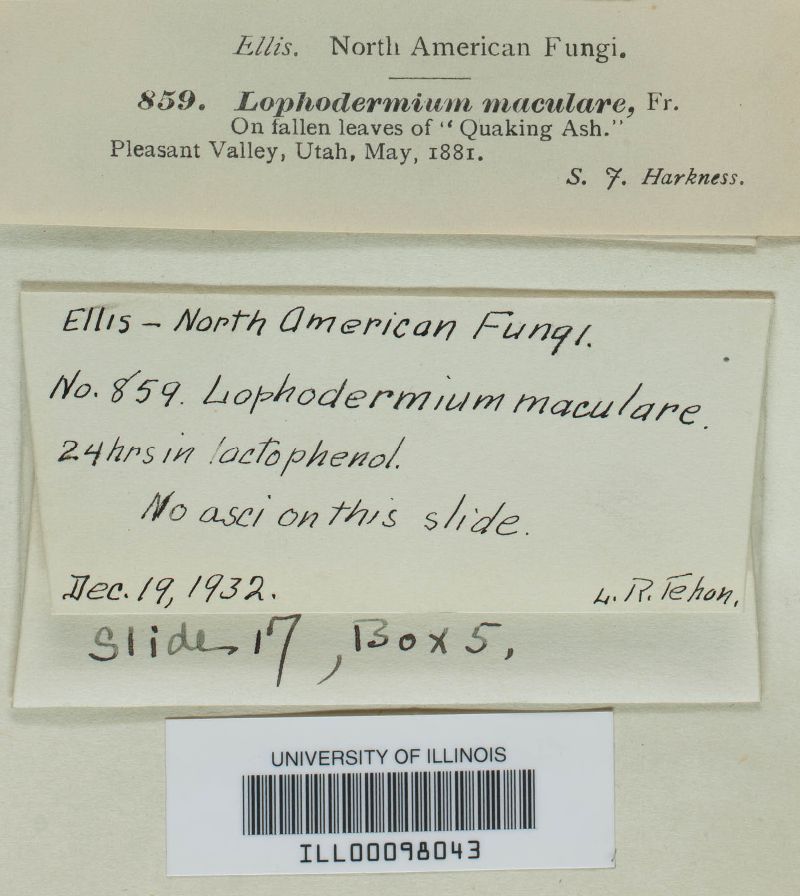 Ellis. North American Fungi.
859. Lophodermium maculare, Fr.
On fallen leaves of "Quaking Ash."
Pleasant Valley, Utah, May, 1881.
S. J. Harkness.
Ellis – North American Fungi.
No. 859. Lophodermium maculare.
24 hrs in lactophenol.
No asci on this slide.
Dec. 19, 1932. L. R. Tehon.
Slide 17, Box 5,
UNIVERSITY OF ILLINOIS
ILL00098043